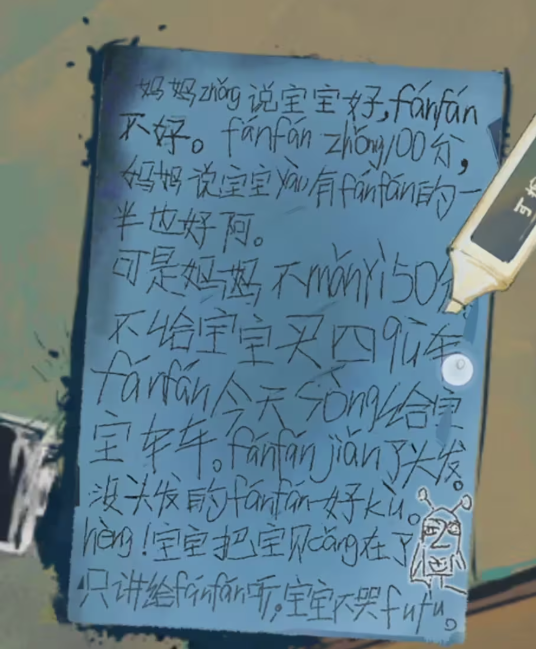 妈妈zhǒng说宝宝好,fánfán
不好。fánfán zhǒng100分,
妈妈说宝宝yào有fánfán的一
半也好阿。
可是妈妈不mǎnyì50分
不给宝宝买四qū车
fánfán今天sòng给宝
宝车车。fánfán jiǎn了头发。
没头发的fánfán一好kù。
hèng!宝宝把宝贝cáng在了
只讲给fánfán听,宝宝不哭fufu。